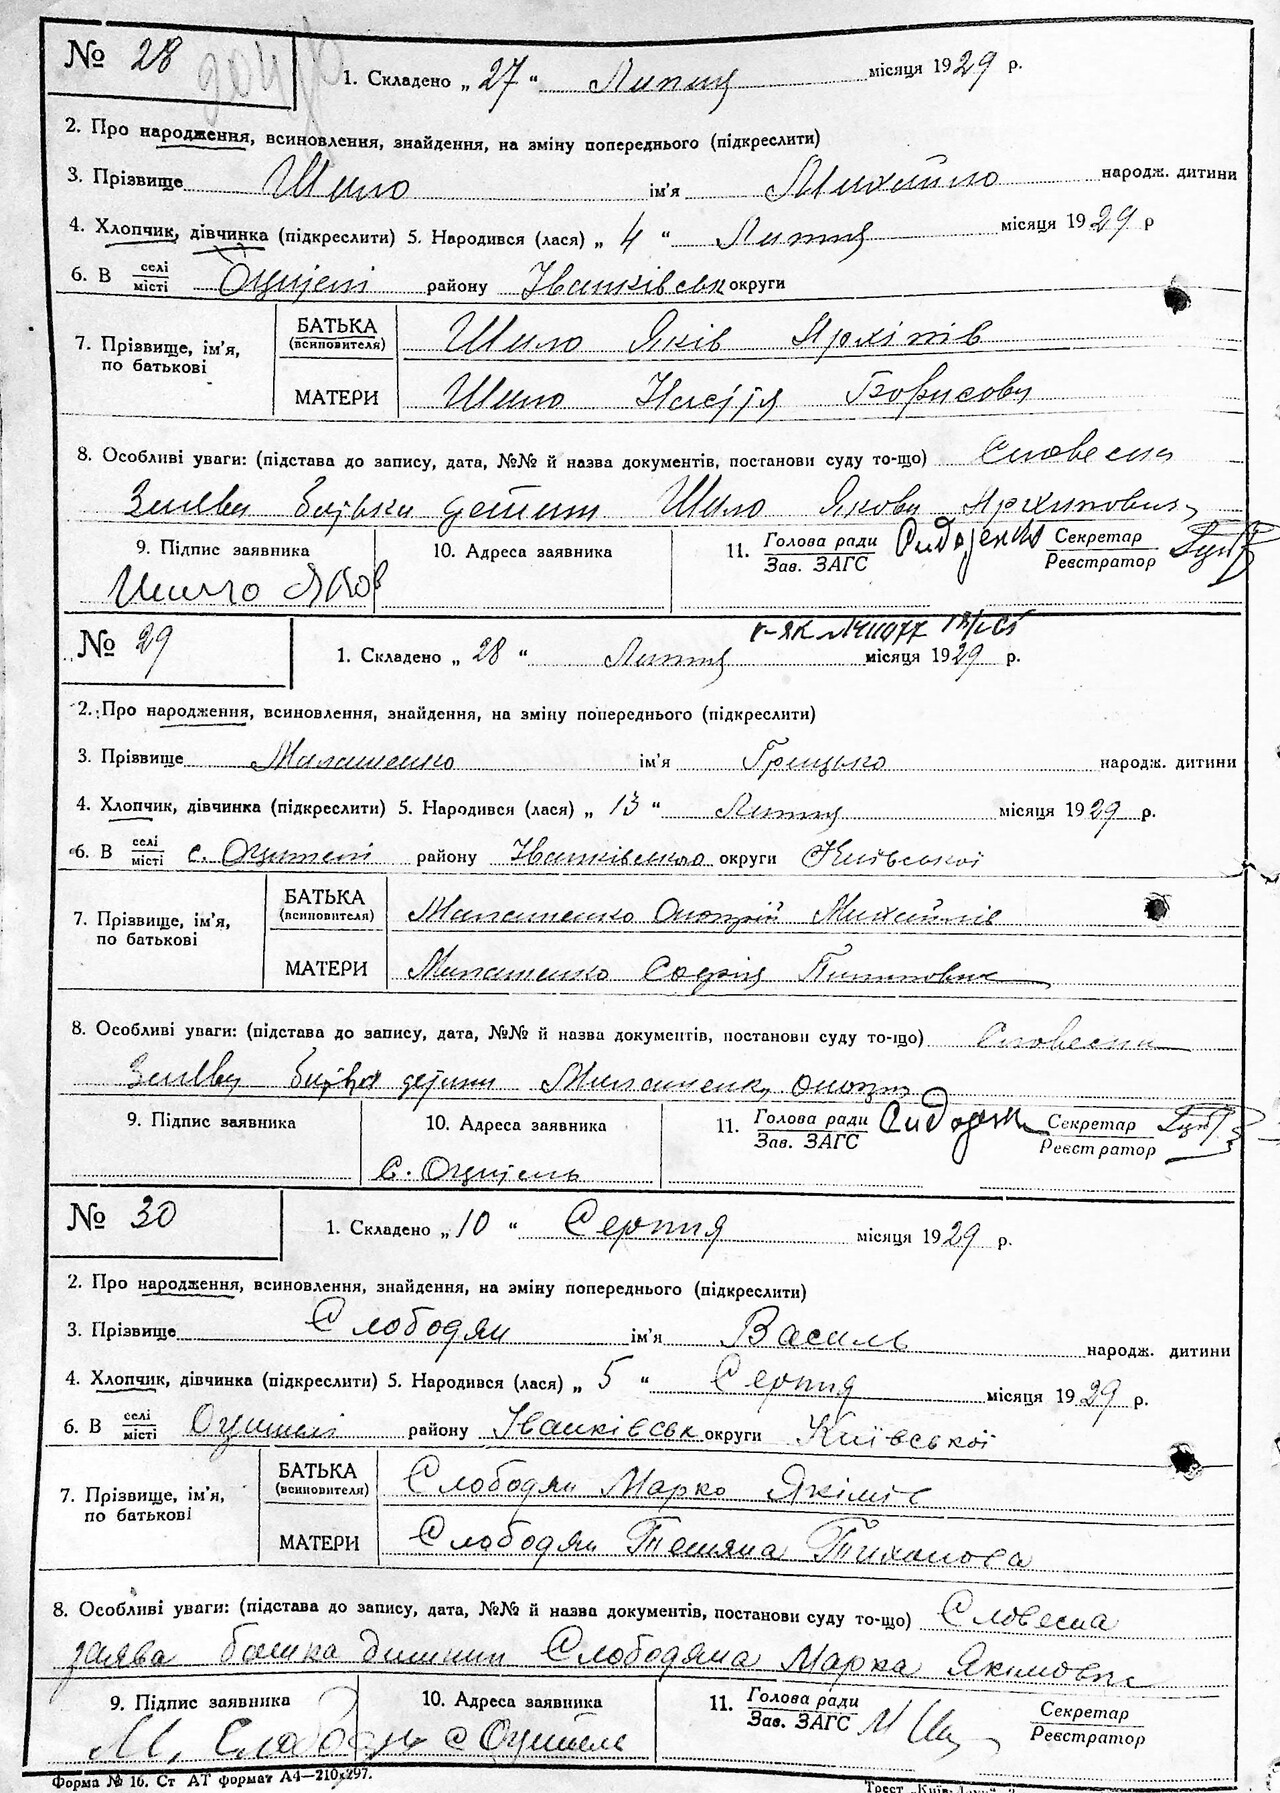 № 28
1. Складено „ 27 “ Липня місяця 1929 р.
2. Про народження, всиновлення, знайдення, на зміну попереднього (підкреслити)
3. Прізвище Шило ім'я Михайло народж. дитини
4. Хлопчик, дівчинка (підкреслити) 5. Народився (лася) „ 4 “ Липня місяця 1929 р
6. В селі/місті Оцителі району Іванківськ округи
7. Прізвище, ім'я, по батькові
БАТЬКА (всиновителя) Шило Яків Архіпів
МАТЕРИ Шило Настя Борисова
8. Особливі уваги: (підстава до запису, дата, №№ й назва документів, постанови суду то-що) Словесна
Заява батька дитини Шило Якова Архиповича
9. Підпис заявника 10. Адреса заявника 11. Голова ради/Зав. ЗАГС Сидоренко Секретар/Реєстратор
Шило Яков
№ 29
1. Складено „ 28 “ Липня місяця 1929 р.
2. Про народження, всиновлення, знайдення, на зміну попереднього (підкреслити)
3. Прізвище Малашенко ім'я Грицько народж. дитини
4. Хлопчик, дівчинка (підкреслити) 5. Народився (лася) „ 13 “ Липня місяця 1929 р.
6. В селі/місті с. Оцителі району Іванківського округи Київської
7. Прізвище, ім'я, по батькові
БАТЬКА (всиновителя) Малашенко Онопрій Михайлів
МАТЕРИ Малашенко Софія Пилиповна
8. Особливі уваги: (підстава до запису, дата, №№ й назва документів, постанови суду то-що) Словесна
Заява батька дитини Малашенка
9. Підпис заявника 10. Адреса заявника 11. Голова ради/Зав. ЗАГС Сидоренко Секретар/Реєстратор
с. Оцитель
№ 30
1. Складено „ 10 “ Серпня місяця 1929 р.
2. Про народження, всиновлення, знайдення, на зміну попереднього (підкреслити)
3. Прізвище Слободян ім'я Василь народж. дитини
4. Хлопчик, дівчинка (підкреслити) 5. Народився (лася) „ 5 “ Серпня місяця 1929 р.
6. В селі/місті Оцителі району Іванківськ округи Київської
7. Прізвище, ім'я, по батькові
БАТЬКА (всиновителя) Слободян Марко Якімів
МАТЕРИ Слободян Тетяна Тихонова
8. Особливі уваги: (підстава до запису, дата, №№ й назва документів, постанови суду то-що) Словесна
заява батька дитини Слободяна Марка Якімовича
9. Підпис заявника 10. Адреса заявника 11. Голова ради/Зав. ЗАГС Секретар/Реєстратор
М. Слободян с Оцитель
Форма № 16. Ст АТ формат А4—210×297.